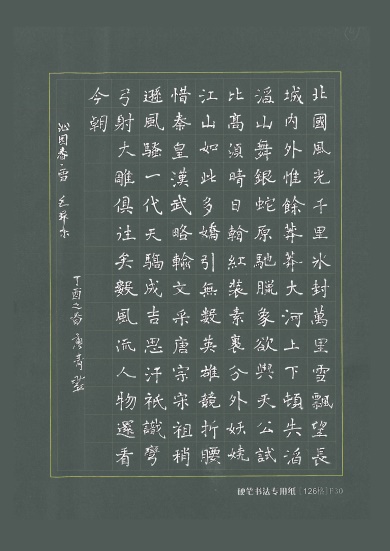 北國風光千里冰封萬里雪飄望長
城内外惟餘莽莽大河上下頓失滔
滔山舞銀蛇原馳臘象欲與天公試
比高須晴日紅裝素裹分外妖嬈
江山如此多嬌引無數英雄競折腰
惜秦皇漢武略輸文采唐宗宋祖稍
遜風騷一代天驕成吉思汗祇識彎
弓射大雕俱往矣數風流人物還看
今朝
沁园春·雪
丁酉之
硬笔书法专用纸 [126格]P30